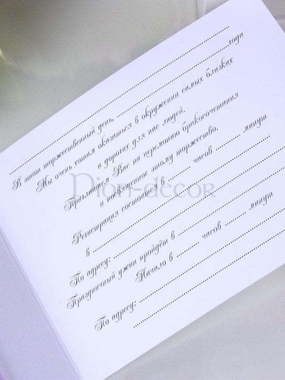 В наш торжественный день года
Мы очень хотим оказаться в окружении самых близких
и дорогих для нас людей.
Приглашаем Вас на церемонию бракосочетания
и посвященное этому торжество.
Регистрация состоится часов минут
в
По адресу:
Праздничный ужин пройдёт в
Начало в часов минут
По адресу:
Dion-decor